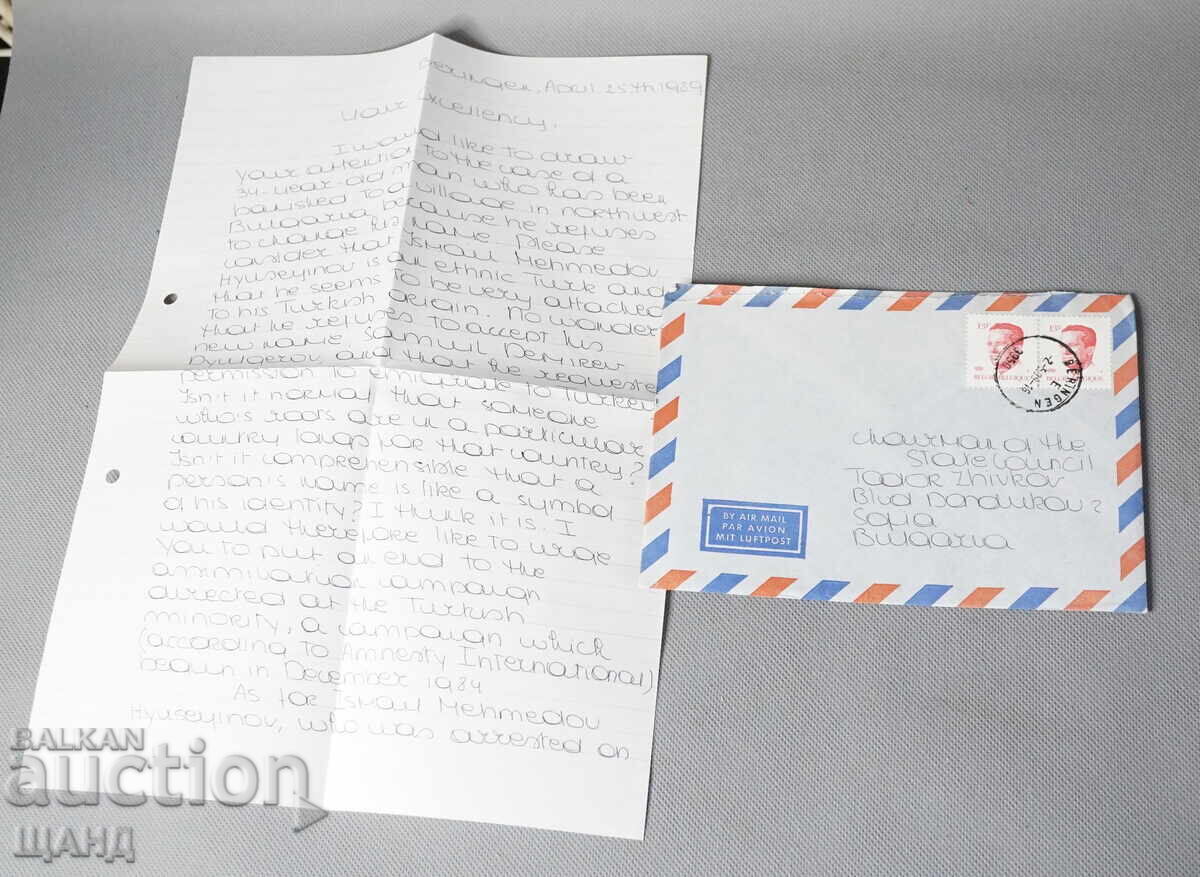 Beringen, April 25th 1989
Your Excellency,
I would like to draw
your attention to the case of a
34-year-old man who has been
banished to a village in northwest
Bulgaria because he refuses
to change his name. Please
consider that Ismail Mehmedov
Hyuseyinov is an ethnic Turk and
that he seems to be very attached
to his Turkish origin. No wonder
that he refuses to accept his
new name Samuil Demirev
and that he requested
permission to emigrate to Turkey!
Isn't it normal that someone
who's roots are in a particular
country longs for that country?
Isn't it comprehensible that a
person's name is like a symbol
of his identity? I think it is. I
would therefore like to urge
you to put an end to the
assimilation campaign
directed at the Turkish
minority, a campaign which
(according to Amnesty International)
began in December 1984
As for Ismail Mehmedov
Hyuseyinov, who was arrested on
BELGIE-BELGIQUE
BERINGEN
E
3950
BY AIR MAIL
PAR AVION
MIT LUFTPOST
Chairman of the
State Council
Todor Zhivkov
Blvd Dondukov 2
Sofia
Bulgaria
BALKAN
auction
ЩАНД